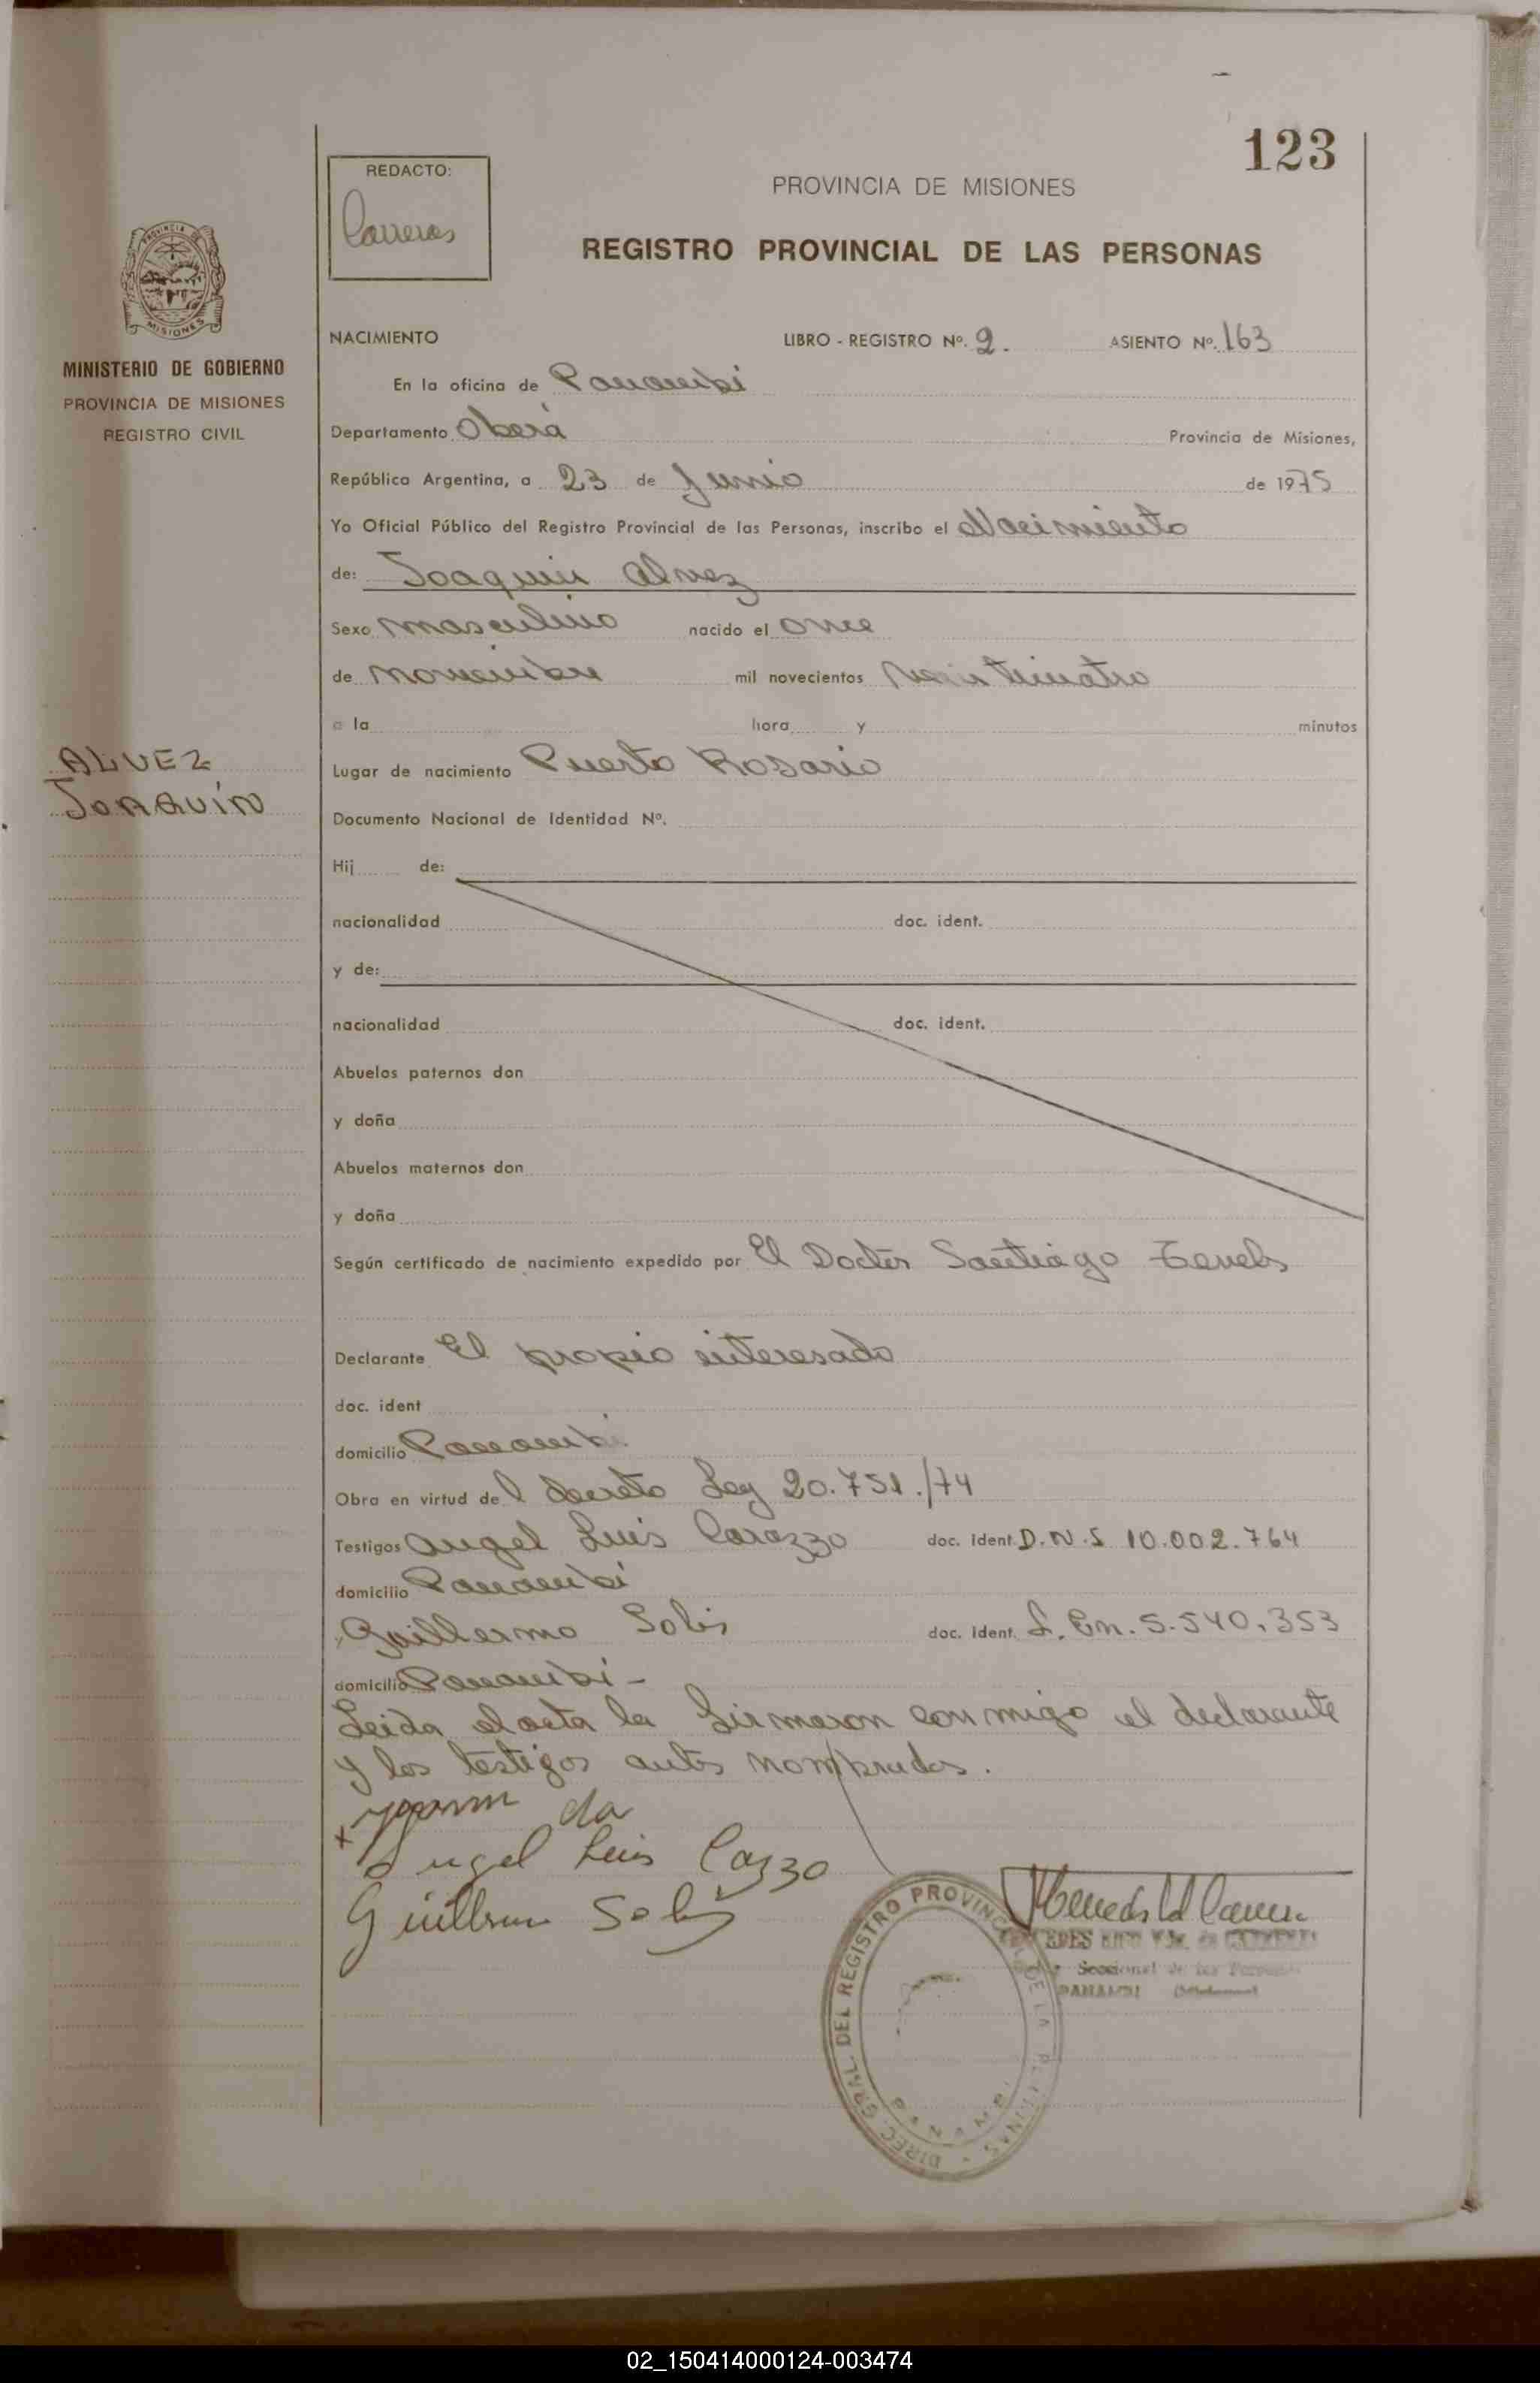 123
REDACTO:
Carreras
PROVINCIA DE MISIONES
REGISTRO PROVINCIAL DE LAS PERSONAS
PROVINCIA DE
MISIONES
MINISTERIO DE GOBIERNO
PROVINCIA DE MISIONES
REGISTRO CIVIL
NACIMIENTO LIBRO - REGISTRO Nº. 2. ASIENTO Nº. 163
En la oficina de Panambí
Departamento Oberá Provincia de Misiones,
República Argentina, a 23 de Junio de 1975
Yo Oficial Público del Registro Provincial de las Personas, inscribo el Nacimiento
de: Joaquin Alvez
Sexo masculino nacido el once
de noviembre mil novecientos
a la hora y minutos
ALVEZ
JOAQUÍN
Lugar de nacimiento Puerto Rosario
Documento Nacional de Identidad Nº.
Hij de:
nacionalidad doc. ident.
y de:
nacionalidad doc. ident.
Abuelos paternos don
y doña
Abuelos maternos don
y doña
Según certificado de nacimiento expedido por El Doctor Santiago
Declarante El propio interesado
doc. ident
domicilio Panambí
Obra en virtud del decreto Ley 20.751./74
Testigos Angel Luis Carazzo doc. ident. D.N.I 10.002.764
domicilio Panambí
Guillermo Solis doc. ident. L. En. 5.540.353
domicilio Panambí -
Leida el acta la firmaron conmigo el declarante
y los testigos antes nombrados.
da
Angel Luis Cazzo
Guillermo Solis
DIREC. GRAL. DEL REGISTRO PROVINCIAL DE LA PERSONAS
PANAMBI
Seccional de las Personas
PANAMBI
02_150414000124-003474